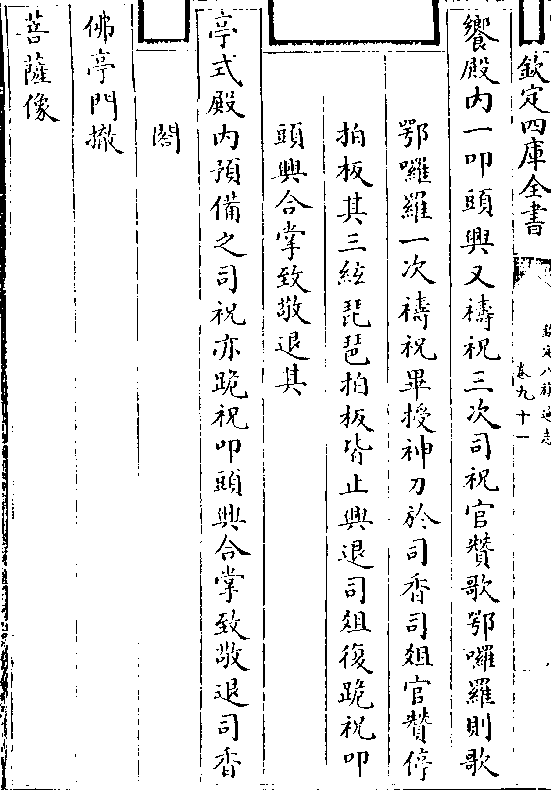 欽定四庫全書
欽定八旗通志
卷九十一
饗殿内一叩頭興又禱祝三次司祝官贊歌鄂囉羅則歌
鄂囉羅一次禱祝畢授神刀於司香司俎官贊停
拍板其三絃琵琶拍板皆止興退司俎復跪祝叩
頭興合掌致敬退其
亭式殿内預備之司祝亦跪祝叩頭興合掌致敬退司香
閤
佛亭門撤
菩薩像